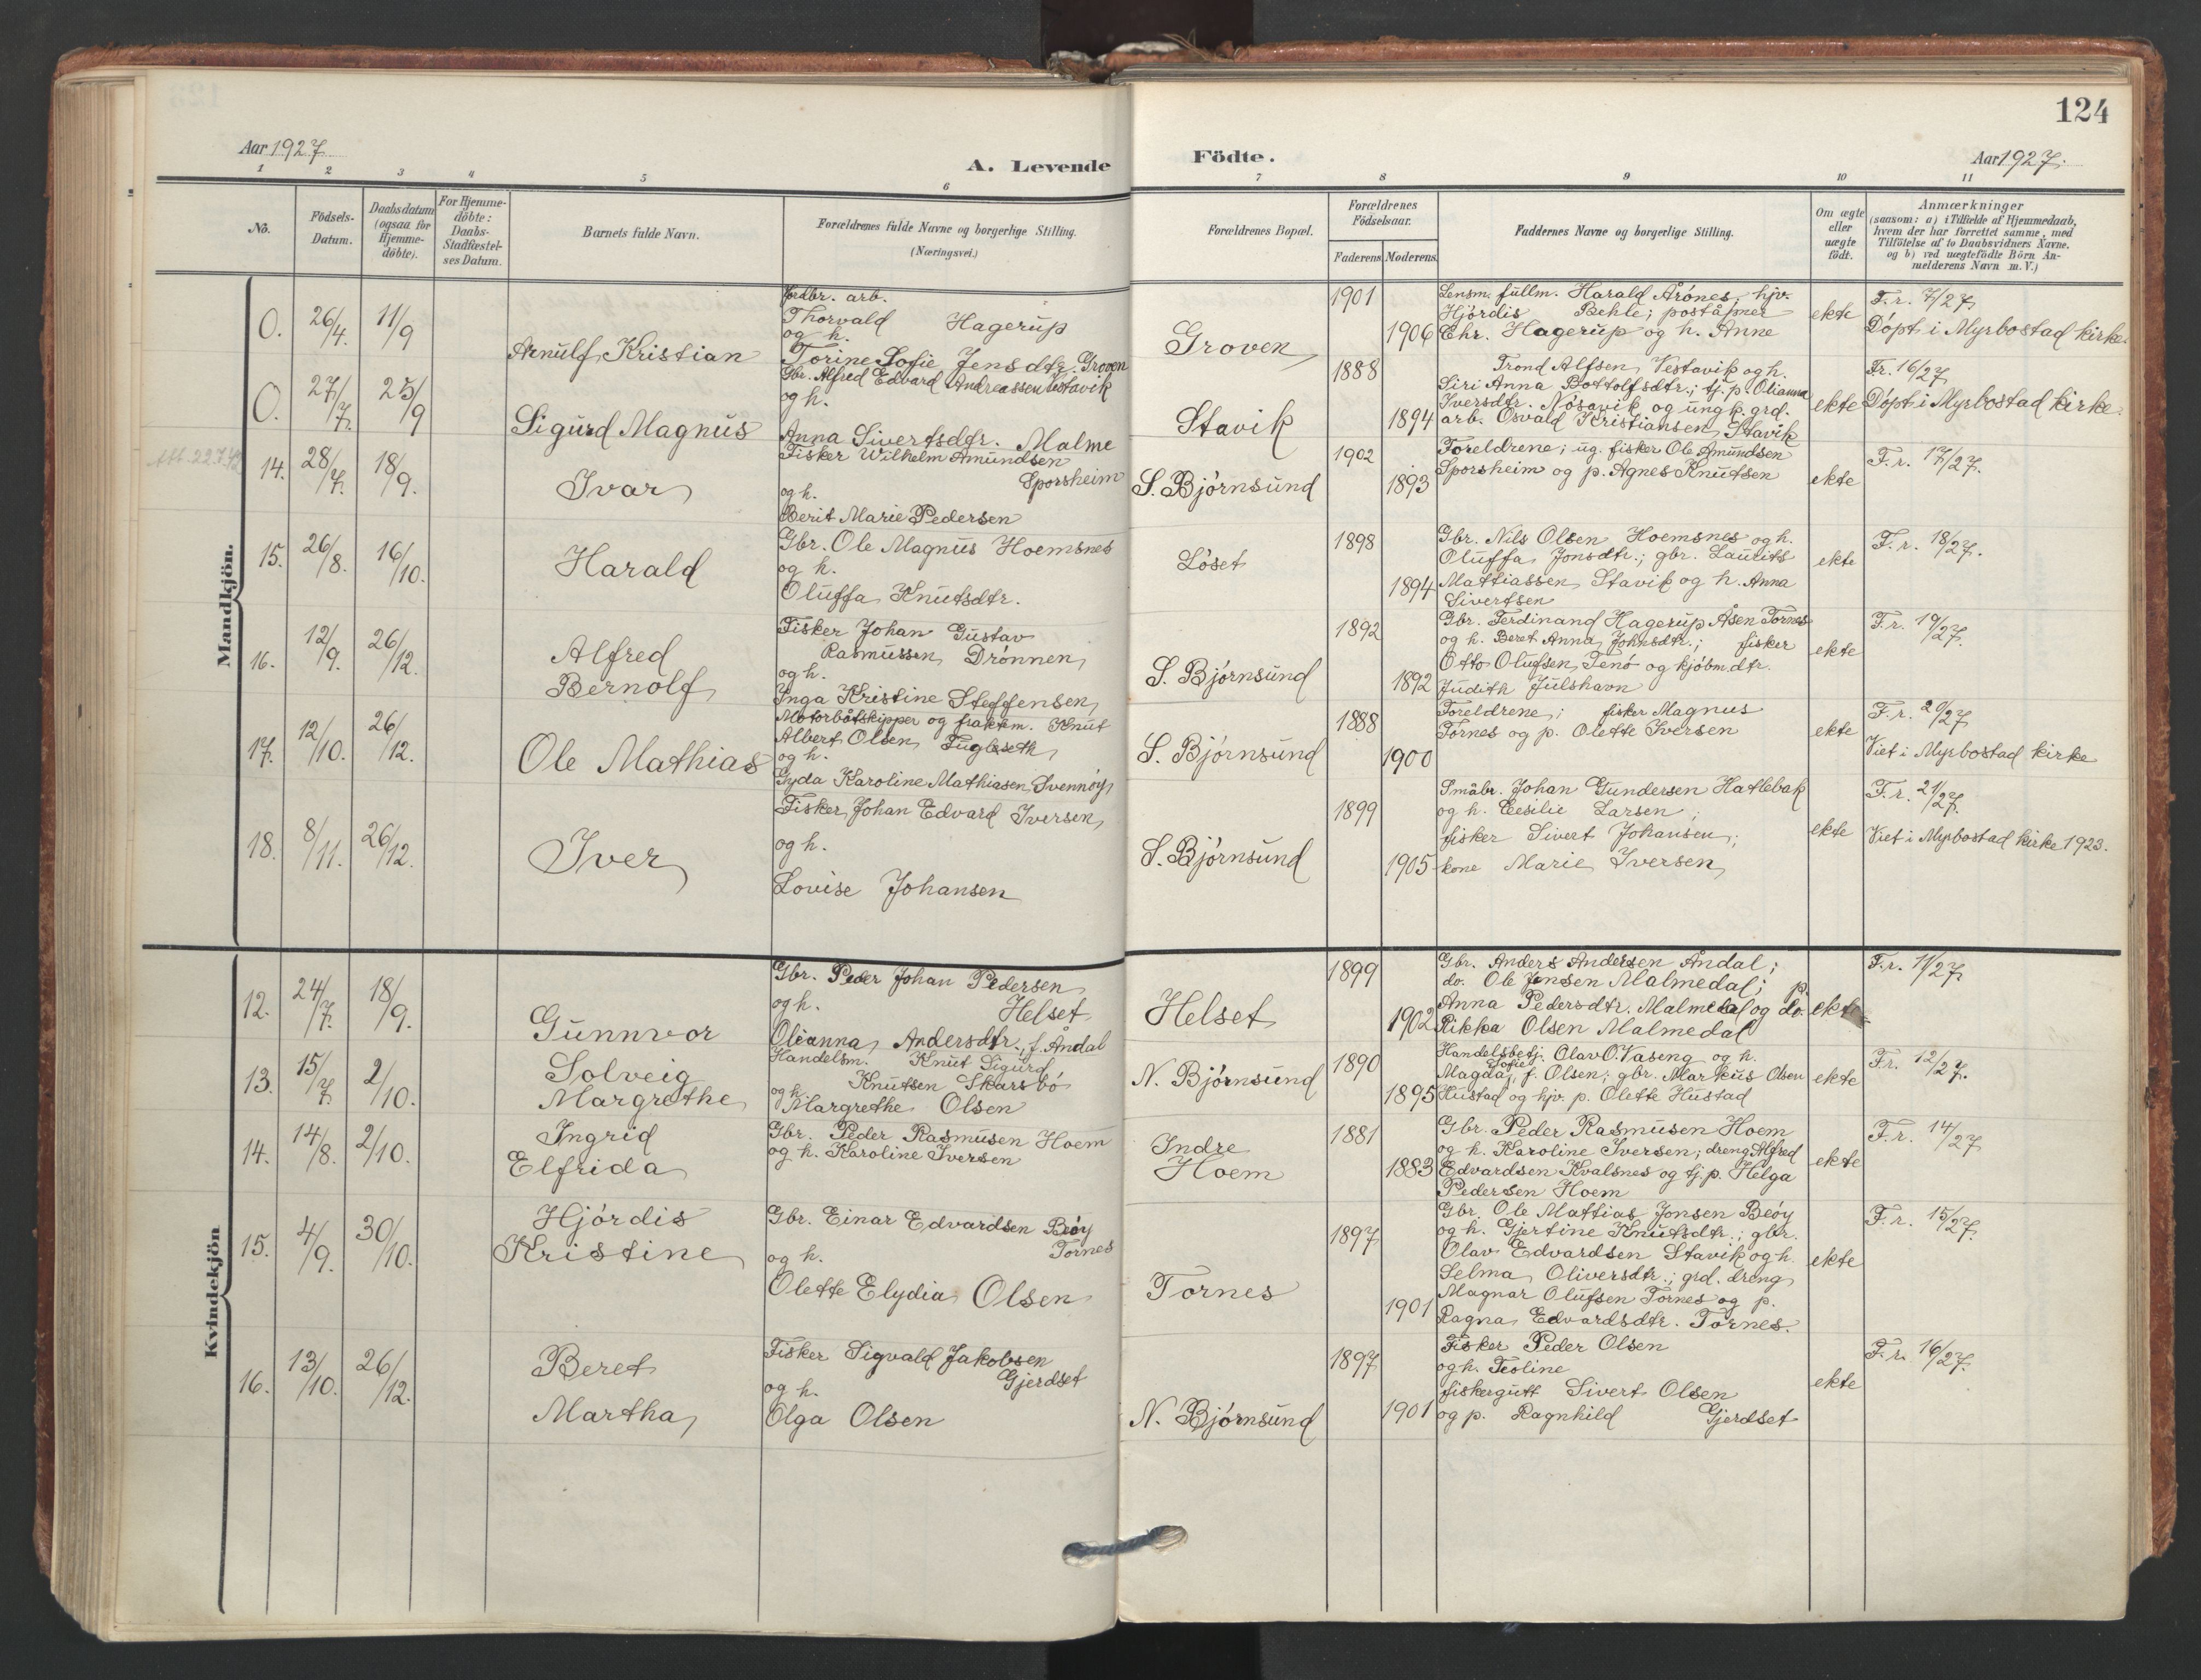 124
Aar 1927
A. Levende
Födte.
Aar 1927.
1 2 3 4 5 6 7 8 9 10 11
No.
Födsels-Datum.
Daabsdatum (ogsaa for Hjemme-döbte).
For Hjemme-döbte: Daabs-Stadfæstel-ses Datum.
Barnets fulde Navn.
Forældrenes fulde Navne og borgerlige Stilling.
(Næringsvei.)
Forældrenes Bopæl.
Forældrenes Födselsaar.
Faderens Moderens
Faddernes Navne og borgerlige Stilling.
Om ægte eller uægte födt.
Anmærkninger
(saasom: a) i Tilfælde af Hjemmedaab,
hvem der har forrettet samme, med
Tilföielse af to Daabsvidners Navne.
og b) ved uægtefödte Börn An-
melderens Navn m.V.)
Mandkjön.
0. 26/4. 11/9
Arnulf Kristian
Jordbr. arb.
Thorvald Hagerup
og h.
Torine Sofie Jensdtr. Groven
Groven
1901
1906
Lensm. fullm. Harald Årönes, hjv.
Hjördis Behle; poståpner
Chr. Hagerup og h. Anne
ekte
F.r. 7/27
Döpt i Myrbostad kirke.
0. 27/7. 25/9
Sigurd Magnus
Gbr. Alfred Edvard Andreassen Vestavik
og h.
Anna Sivertsdtr. Malme
Stavik
1888
1894
Trond Alfsen Vestavik og h.
Siri Anna Bottolfsdtr.; tj. p. Olianna
Iversdtr. Nösavik og ungk. grd.
arb. Osvald Kristiansen Stavik
ekte
Fr. 16/27
Döpt i Myrbostad kirke.
14. 28/7. 18/9.
Ivar
Fisker Wilhelm Amundsen
Sporsheim
og h.
Berit Marie Pedersen
S. Björnsund
1902
1893
Foreldrene; ug. fisker Ole Amundsen
Sporsheim og p. Agnes Knutsen
ekte
F.r. 17/27.
15. 26/8. 16/10.
Harald
Gbr. Ole Magnus Hoemsnes
og h.
Oluffa Knutsdtr.
Löset
1898
1894
Gbr. Nils Olsen Hoemsnes og h.
Oluffa Jonsdtr.; gbr. Laurits
Mattiassen Stavik og h. Anna
Sivertsen
ekte
F.r. 18/27.
16. 12/9. 26/12.
Alfred
Bernolf
Fisker Johan Gustav
Rasmussen Drönnen
og h.
Inga Kristine Steffensen
S. Björnsund
1892
1892
Gbr. Ferdinand Hagerup Åsen Tornes
og h. Beret Anna Johnsdtr.; fisker
Otto Olufsen Tenö og kjöbm.dtr.
Judith Julshavn
ekte
F.r. 19/27.
17. 12/10. 26/12.
Ole Mathias
Motorbåtskipper og fraktem. Knut
Albert Olsen Fugleseth
og h.
Gyda Karoline Mathiasen Svennöy
S. Björnsund
1888
1900
Foreldrene; fisker Magnus
Tornes og p. Olette Iversen
ekte
F.r. 20/27
Viet i Myrbostad kirke
18. 8/11. 26/12.
Iver
Fisker Johan Edvard Iversen
og h.
Lovise Johansen
S. Björnsund
1899
1905
Småbr. Johan Gundersen Hatlebak
og h. Cecilie Larsen;
fisker Sivert Johansen;
kone Marie Iversen
ekte
F.r. 21/27.
Viet i Myrbostad kirke 1923.
Kvindekjön
12. 24/7. 18/9.
Gunnvor
Gbr. Peder Johan Pedersen
og h. Helset
Olianna Andersdtr., f. Åndal
Helset
1899
1902
Gbr. Anders Andersen Åndal;
do. Ole Jensen Malmedal; p.
Anna Pedersdtr. Malmedal og do.
Rikka Olsen Malmedal
ekte
F.r. 11/27.
13. 15/7. 2/10.
Solveig
Margrethe
Handelsm. Knut Sigurd
Knutsen Skarsbö
og h.
Margrethe Olsen
N. Björnsund
1890
1895
Handelsbetj. Olav O. Vaseng og h.
Magda Sofie, f. Olsen; gbr. Markus Olsen
Hustad og hjv. p. Olette Hustad
ekte
Fr. 12/27.
14. 14/8. 2/10.
Ingrid
Elfrida
Gbr. Peder Rasmusen Hoem
og h. Karoline Iversen
Indre
Hoem
1881
1883
Gbr. Peder Rasmusen Hoem
og h. Karoline Iversen; dreng Alfred
Edvardsen Kvalsnes og tj. p. Helga
Pedersen Hoem
ekte
F.r. 14/27
15. 4/9. 30/10.
Hjördis
Kristine
Gbr. Einar Edvardsen Beöy
Tornes
og h.
Olette Elydia Olsen
Tornes
1897
1901
Gbr. Ole Mattias Jonsen Beöy
og h. Gjertine Knutsdtr.; gbr.
Olav Edvardsen Stavik og h.
Selma Oliversdtr.; grd. dreng
Magnar Olufsen Tornes og p.
Ragna Edvardsdtr. Tornes.
ekte
F.r. 15/27.
16. 13/10. 26/12.
Beret
Martha
Fisker Sigvald Jakobsen
Gjerdset
og h.
Olga Olsen
N. Björnsund
1897
1901
Fisker Peder Olsen
og h. Teoline
fiskergutt Sivert Olsen
og p. Ragnhild Gjerdset
ekte
F.r. 16/27.